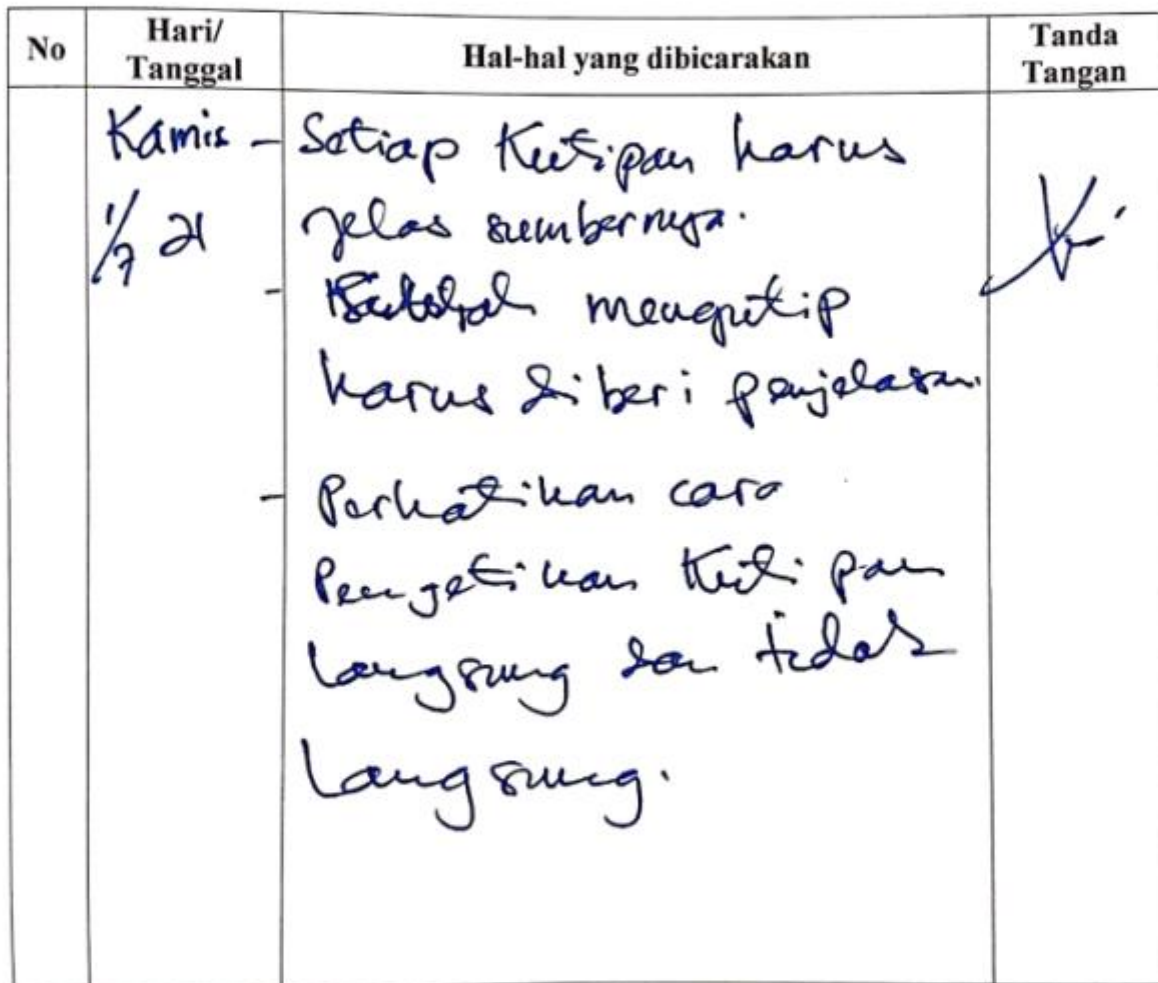 No
Hari/
Tanggal
Hal-hal yang dibicarakan
Tanda
Tangan
Kamis
1/7 21
- Setiap Kutipan harus
jelas sumbernya.
- mengutip
harus diberi penjelasan.
- Perhatikan cara
Pengetikan Kutipan
langsung dan tidak
langsung.